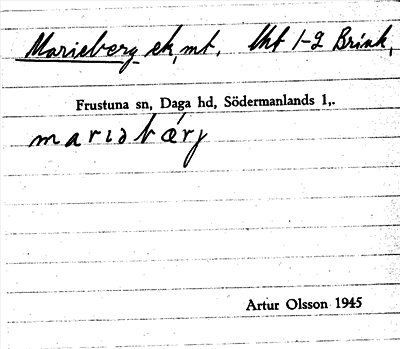 Marieberg ek, mt. Uht 1-2 Brink,
Frustuna sn, Daga hd, Södermanlands l,.
maridbærj
Artur Olsson 1945